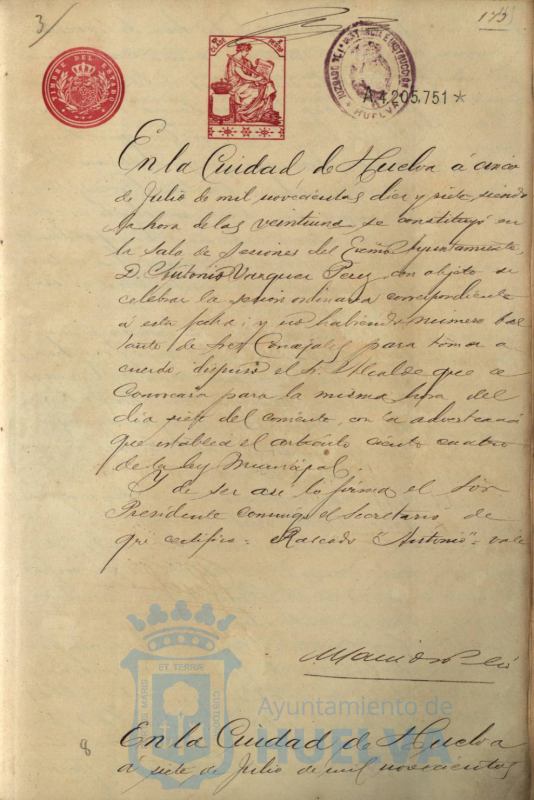 3/
173
TIMBRE DEL ESTADO
JUZGADO DE 1ª INSTANCIA E INSTRUCCION
HUELVA
A4.205.751*
En la Ciudad de Huelva á cinco
de Julio de mil novecientos diez y siete, siendo
la hora de las veintiuna se constituyó en
la Sala de Sesiones del Excmo Ayuntamiento,
D. Antonio Vazquez Perez, con objeto de
celebrar la sesion ordinaria correspondiente
á esta fecha; y no habiendo número bas
tante de Sres Concejales para tomar a
cuerdo, dispuso el Sr. Alcalde que se
convocara para la misma hora del
dia siete del corriente, con la advertencia
que establece el artículo ciento cuatro
de la ley Municipal.
Y de ser asi lo firma el Señor
Presidente conmigo el Secretario de
que certifico = Rascado "Antonio" = vale
MARIS
ET TERRÆ
CUSTODIA
Ayuntamiento de
HUELVA
8
En la Ciudad de Huelva
á siete de Julio de mil novecientos